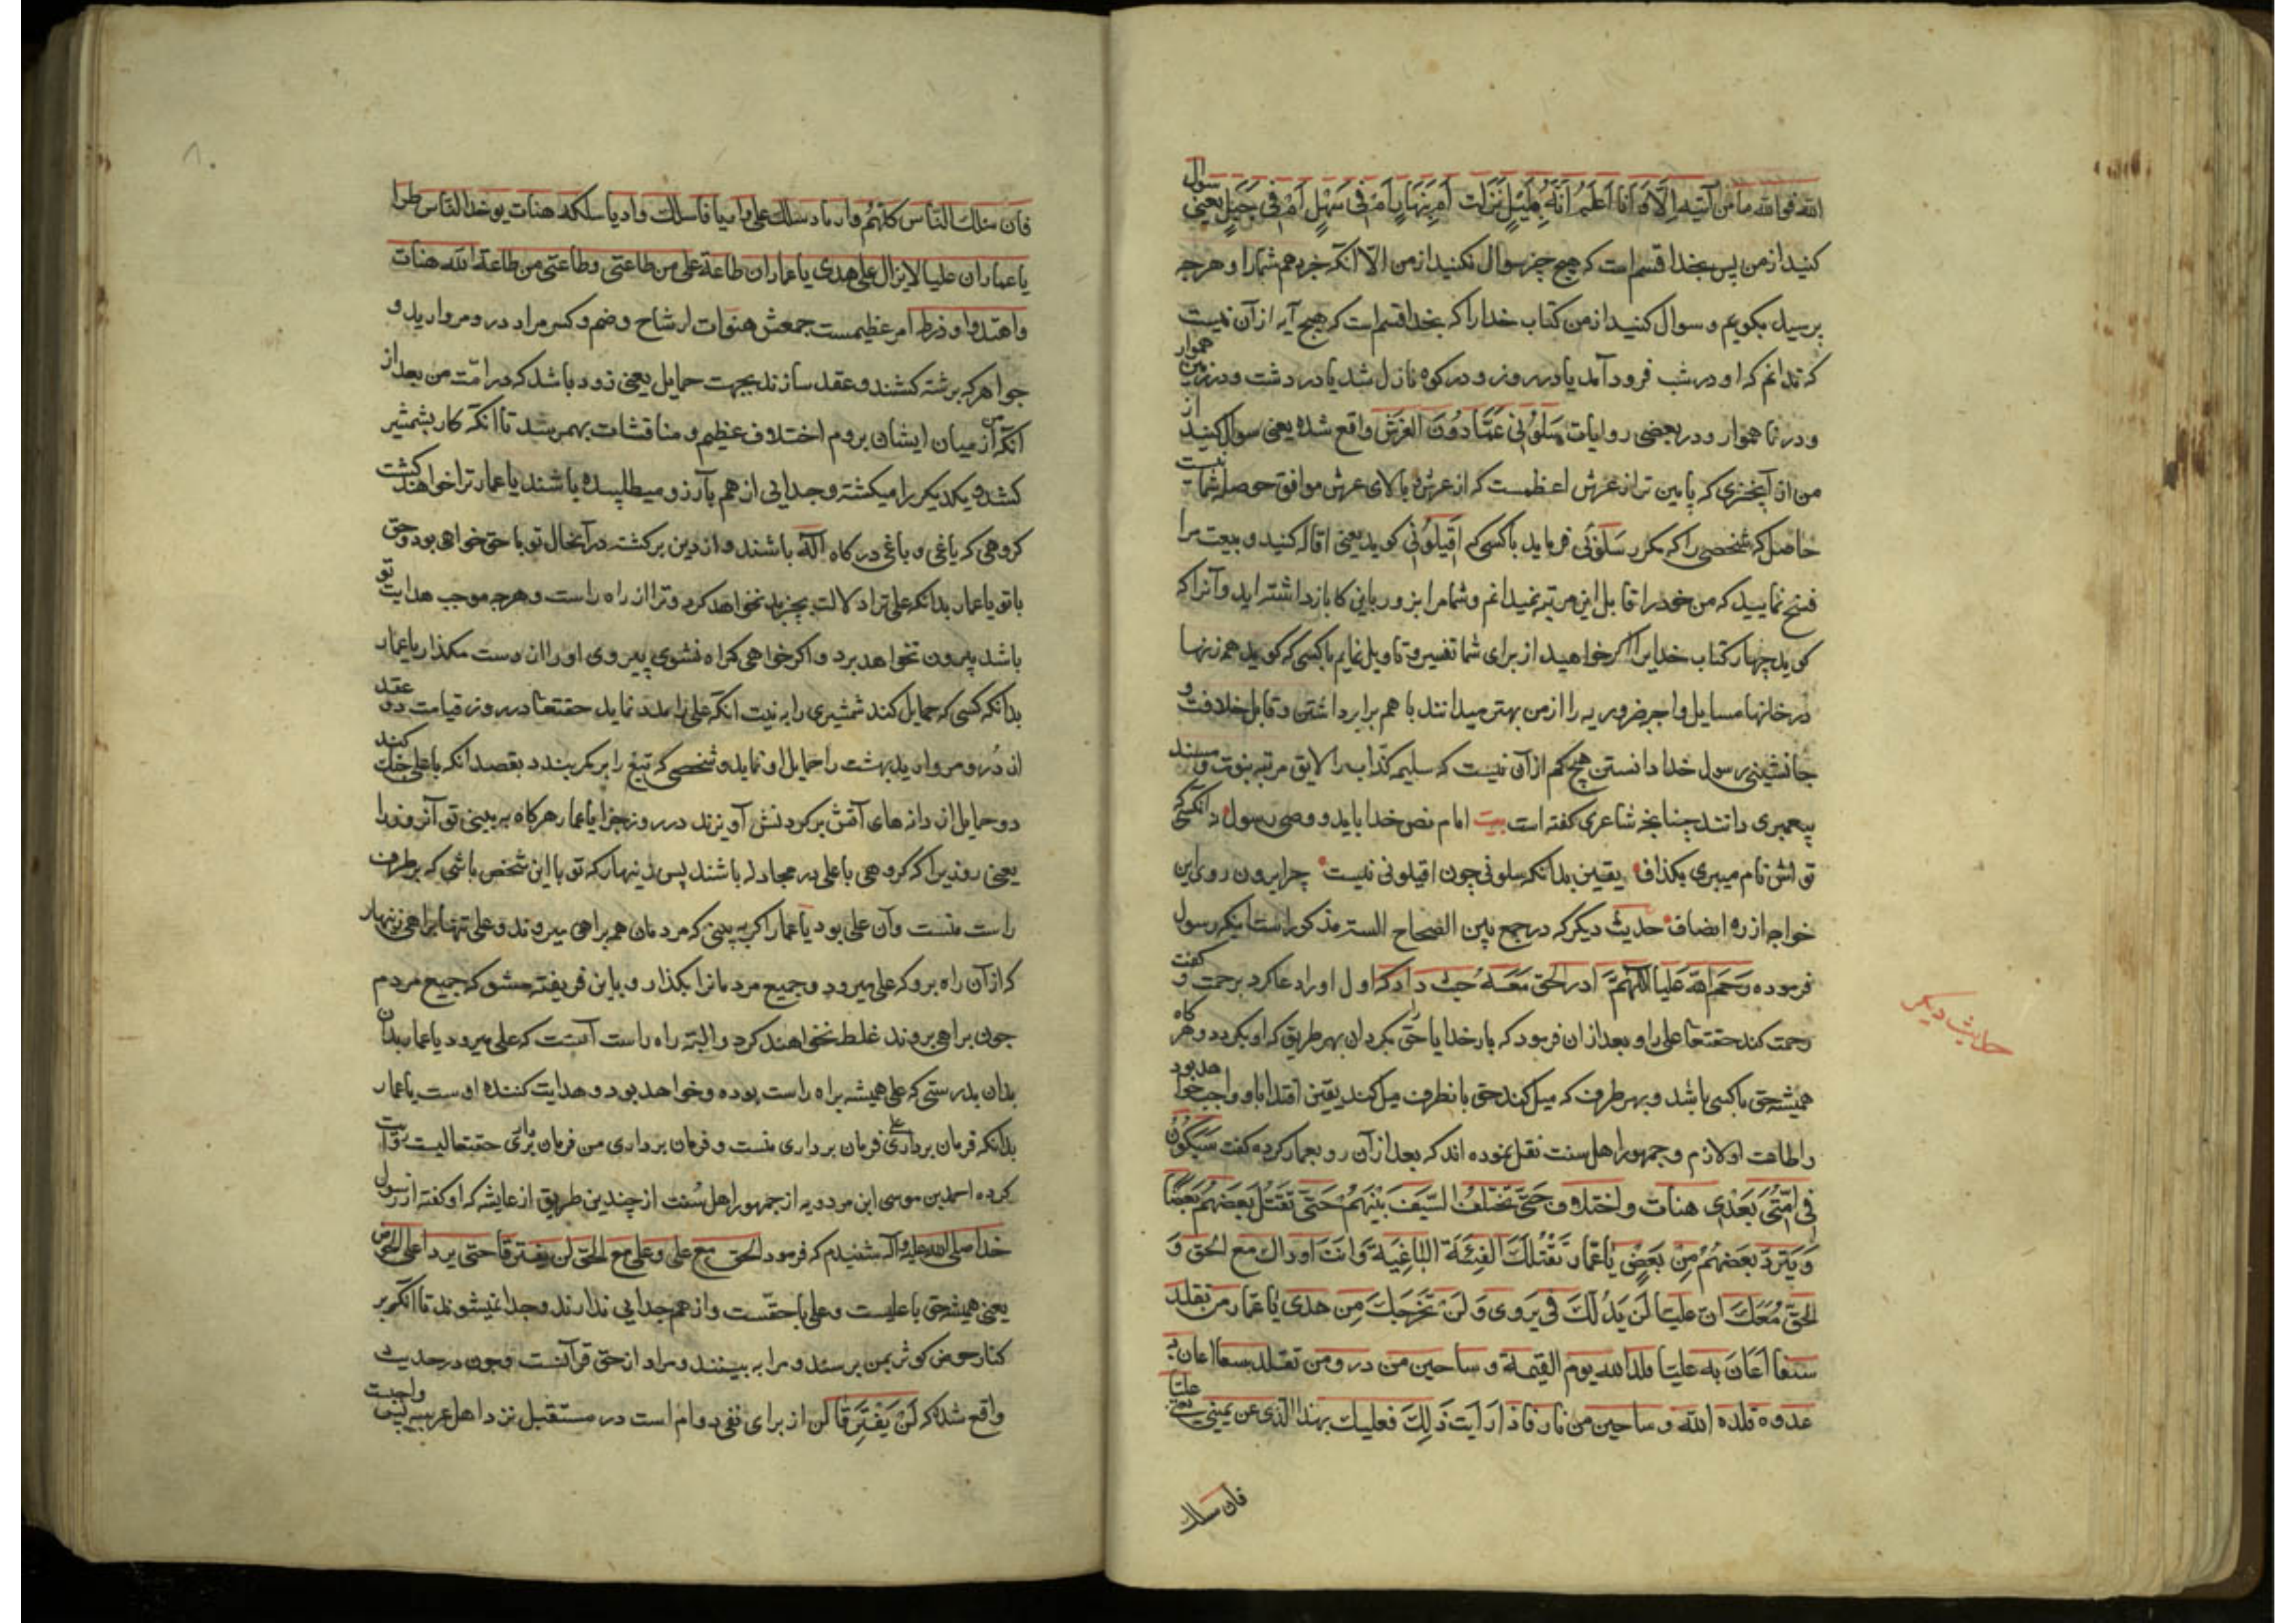 الله فوالله ما من آیة الا و انا اعلم انه بلیل نزلت ام بنهار ام فی سهل ام فی جبل یعنی سوال
کنید از من پس بخدا قسم است که هیچ چیز سوال نکنید از من الا آنکه خبر دهم شما را و هر چه
پرسید بگویم و سوال کنید از من کتاب خدا را که بخدا قسم است که هیچ آیه از آن نیست
که ندانم که او در شب فرود آمد یا در روز و در کوه نازل شد یا در دشت و در زمین هموار
و در نا هموار و در بعضی روایات سَلوُنی عَمّا دوُنَ العَرش واقع شده یعنی سوال کنید از
من از آنچیزی که پایین تر از عرش اعظمست که از عرش و بالای عرش موافق حوصله شما نیست
حاصل که شخصی را که مکرر سلونی فرماید با کسی که اقیلونی گوید یعنی اقاله کنید و بیعت مرا
فسخ نمایید که من خود را قابل این مرتبه نمیدانم و شما مرا بزور باین کار بازداشته اید و آنرا که
گوید چهار کتاب خدایرا اگر خواهید از برای شما تفسیر و تاویل نمایم با کسی که گوید همه زنها
در خانها مسایل واجبه ضروریه را از من بهتر میدانند با هم برابر داشتن و قابل خلافت و
جانشینی رسول خدا دانستن هیچ کم از آن نیست که مسیلمه کذاب را لایق مرتبه نبوت و مسند
پیغمبری دانند چنانچه شاعری گفته است بیت امام نص خدا باید و وصی رسول نه آنکسی که
تو اش نام میبری بگذاف یقین بدانکه سلونی چون اقیلونی نیست چرا برون روی این
خواجه از ره انصاف حدیث دیگر که در جمع بین الصحاح السته مذکور است اینکه رسول
فرموده رَحِمَ الله عَلیا اللهُمَّ ادر الحق مَعَهُ حیث دار که اول او را دعا کرد برحمت و گفت
رحمت کند حقتعالی علی را و بعد از ان فرمود که بار خدایا حق را بگردان بهر طریق که او بگردد و هر گاه
همیشه حق با کسی باشد و بهر طرف که میل کند حق بانطرف میل کند یقین اقتدا باو واجب خواهد بود
و اطاعت او لازم و جمهور اهل سنت نقل نموده اند که بعد از آن رو بعمار کرده گفت سَیَکُونُ
فی اُمّتی بَعْدی هنات و اختلاف حَتّی یختلف السّیف بَیْنَهُمْ حَتّی یَقتُل بَعضهُم بَعضًا
وَ یَتبرّء بَعضهُمْ مِن بَعضٍ یا عَمّار تَقْتُلک الفِئَة البَاغِیة وَ انتَ اذ ذاک مَع الحَق وَ
الحَقّ مَعَکَ ان علیّا لَن یَدُلّکَ فی ردی وَ لَنْ یُخرجَکَ مِن هدی یا عَمّار من تقلد
سیفا اَعَانَ به علیّا قلده الله یوم القیمة وساحین من در و من تقلد سیفا اعان به
عدوه قلده الله وساحین من نار فاذا رایت ذلِکَ فعلیک بهذا الذی عن یمینی یعنی علیّا
فان سلک
حدیث دیگر
فان سلک النّاس کلهُم وادیا و سلک علی وادیا فاسلک وادیا سلکه هنات یو خل النّاس طرا
یا عمار ان علیا لا یزال علی هدی یا عمار ان طاعة علی من طاعتی و طاعتی من طاعة الله هنات
جواهر که برشته کشند و عقد سازند بجهت حمایل یعنی زود باشد که در امّت من بعد از
آنکه من از میان ایشان بروم اختلاف عظیم و مناقشات بهمرسد تا آنکه کار بشمشیر
کشد و یکدیگر را میکشته و جدایی از هم بآرزو میطلبیده باشند یا عمار ترا خواهند کشت
گروهی که یاغی و باغی درگاه اله باشند و از دین برگشته در آنحال تو با حق خواهی بود و حق
با تو یا عمار بدانکه علی ترا دلالت بچیز بد نخواهد کرد و ترا از راه راست و هر چه موجب هدایت تو
باشد بیرون نخواهد برد و اگر خواهی گمراه نشوی پیروی او را از دست مگذار یا عمار
بدانکه کسی که حمایل کند شمشیری را به نیت آنکه علی را مدد نماید حقتعالی در روز قیامت دو عقد
از دُر و مروارید بهشت را حمایل او نماید و شخصی که تیغ را بر کمر بندد بقصد آنکه با علی جنک کند
دو حمایل از دانه های آتش بر گردنش آویزند در روز جزا یا عمار هر گاه به بینی تو آنروز را
یعنی روزیرا که گروهی با علی در مجادله باشند پس زینهار که تو با این شخص باشی که بر طرف
راست منست و آن علی بود یا عمار اگر به بینی که مردمان همه براهی میروند و علی تنها براهی زینهار
که از آن راه برو که علی میرود و جمیع مردمانرا بگذار و باین فریفته مشو که جمیع مردم
چون براهی بروند غلط نخواهند کرد و البته راه راست آنست که علی میرود یا عمار بدان
بدان بدرستی که علی همیشه براه راست بوده و خواهد بود و هدایت کننده اوست یا عمار
بدانکه فرمان برداری علی فرمان برداری منست و فرمان برداری من فرمان برداری حقتعالیست روایت
کرده احمد بن موسی ابن مردویه از جمهور اهل سُنت از چندین طریق از عایشه که او گفته از رسول
خدا صلی الله علیه و آله شنیدم که فرمود الحق مع علی و علی مع الحق لن یفترقا حتی یردا علی الحوض
یعنی همیشه حق با علیست و علی با حقّست و از هم جدایی ندارند و جدا نمیشوند تا آنکه بر
کنار حوض کوثر بمن برسند و مرا به بینند و مراد از حق قرآنست و چون در حدیث
واقع شده که لَنْ یَفْتَرِقا لن از برای نفی دوام است در مستقبل نزد اهل عربیه